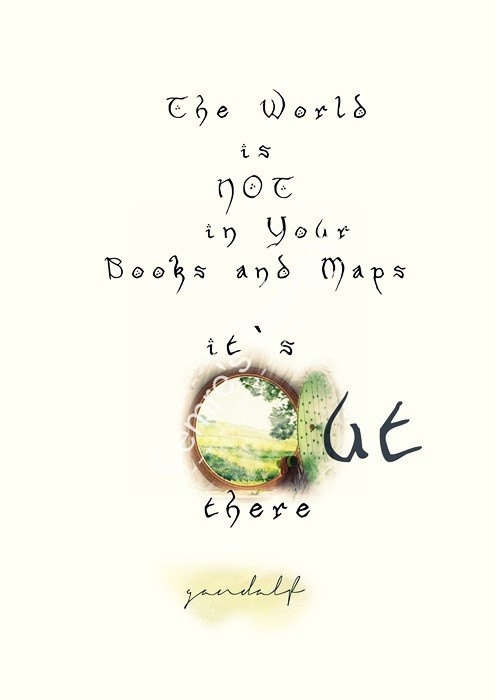 The World
is
NOT
in Your
Books and Maps
it`s
Out
there
gandalf